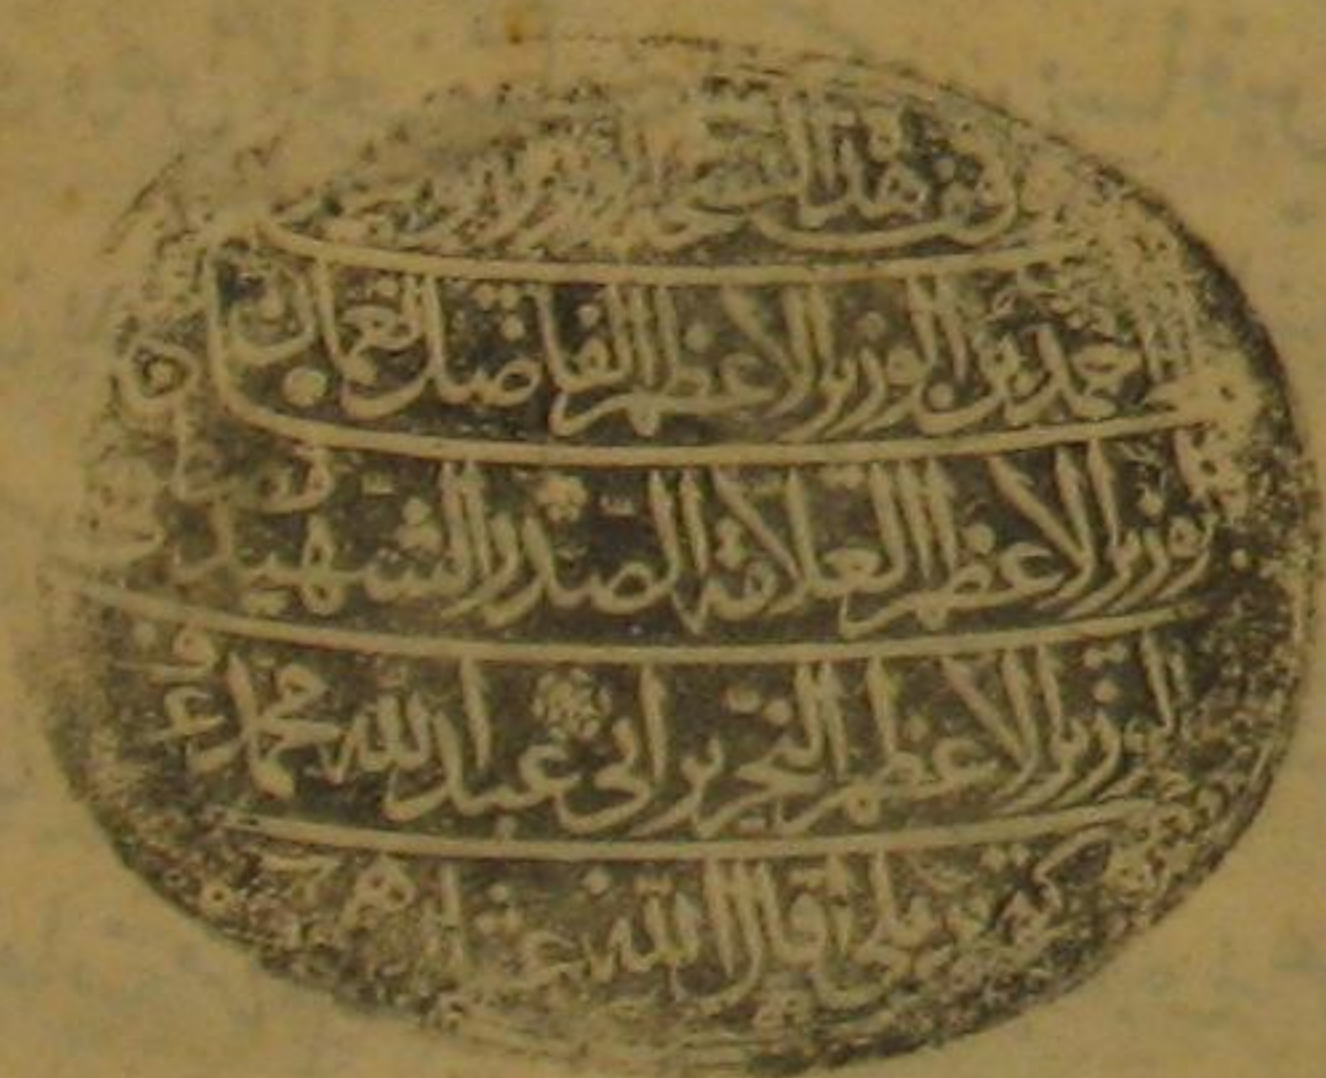 وقف هذه النسخة
احمد بن الوزير الاعظم الفاضل نعمان بن
الوزير الاعظم العلامة الصدر الشهيد بن
الوزير الاعظم النحرير ابي عبد الله محمد عرف
بكوپريلي اقال الله عثارهم